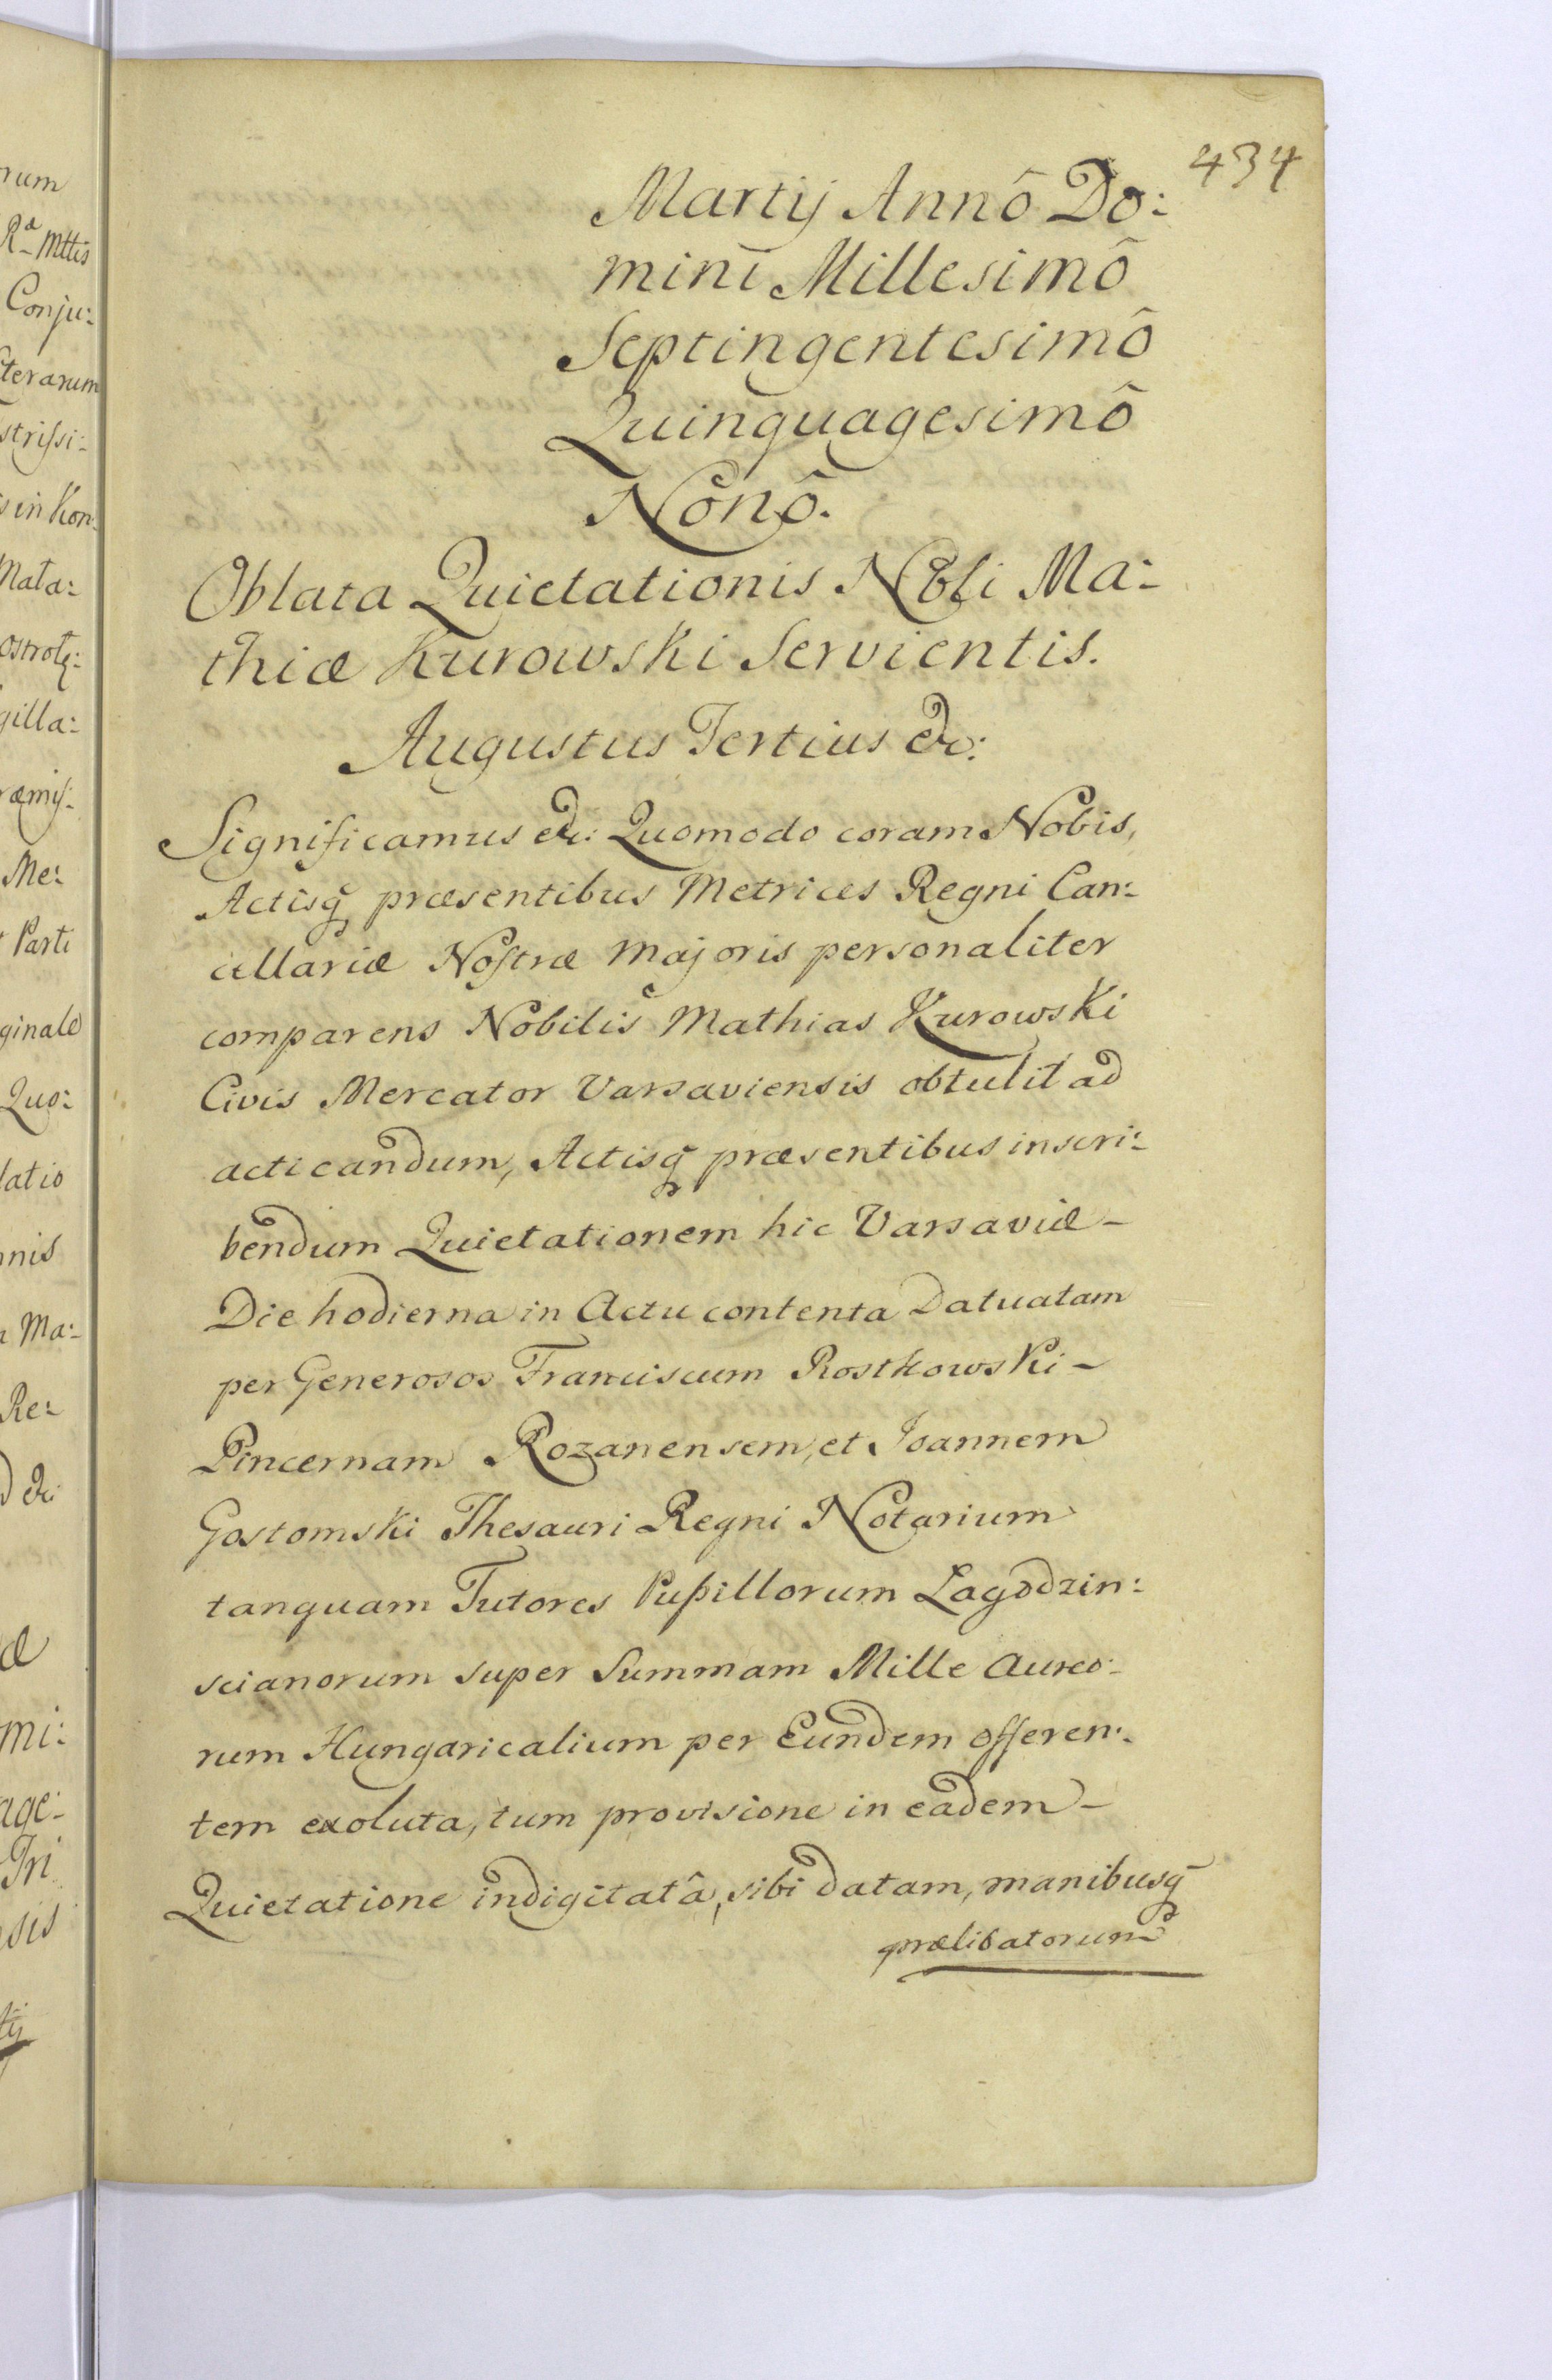 434
Martij Annô Do:
mini Millesimô
Septingentesimô
Quinquagesimô
Nonô.
Oblata Quietationis Nobli Ma:
thiæ Kurowski Servientis.
Augustus Tertius &c:
Significamus &c: Quomodo coram Nobis,
Actisq̃ præsentibus Metrices Regni Can:
cellariæ Nostræ Majoris personaliter
comparens Nobilis Mathias Kurowski
Civis Mercator Varsaviensis obtulit ad
acticandum, Actisq̃ præsentibus inscri:
bendum Quietationem hic Varsaviæ –
Die hodierna in Actu contenta Datuatam
per Generosos Franciscum Rostkowski –
Pincernam Rozanensem, et Joannem
Gostomski Thesauri Regni Notarium
tanquam Tutores Pupillorum Lagodzin:
scianorum super Summam Mille Aureo:
rum Hungaricalium per Eundem offeren:
tem exoluta, tum provisione in eadem –
Quietatione indigitatâ, sibi datam, manibusq̃
prælibatorum
rum
Rª Mttis
Conju:
terarum
strissi:
in Kon:
Mata:
gilla:
Me:
Parti
ginale
Quo:
latio
nnis
Ma:
Re:
&c:
æ
mi:
age:
Tri
sis
tij